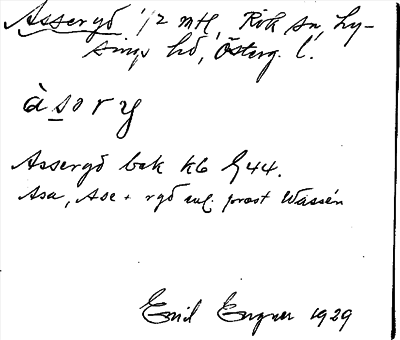 Assergd 1/2 mtl, Rök sn, Ly-
sings hd, Österg. l.
àsory
Assergd bok kb 44.
Asa, Ase + rgd enl. prost Wassén
Emil Engner 1929